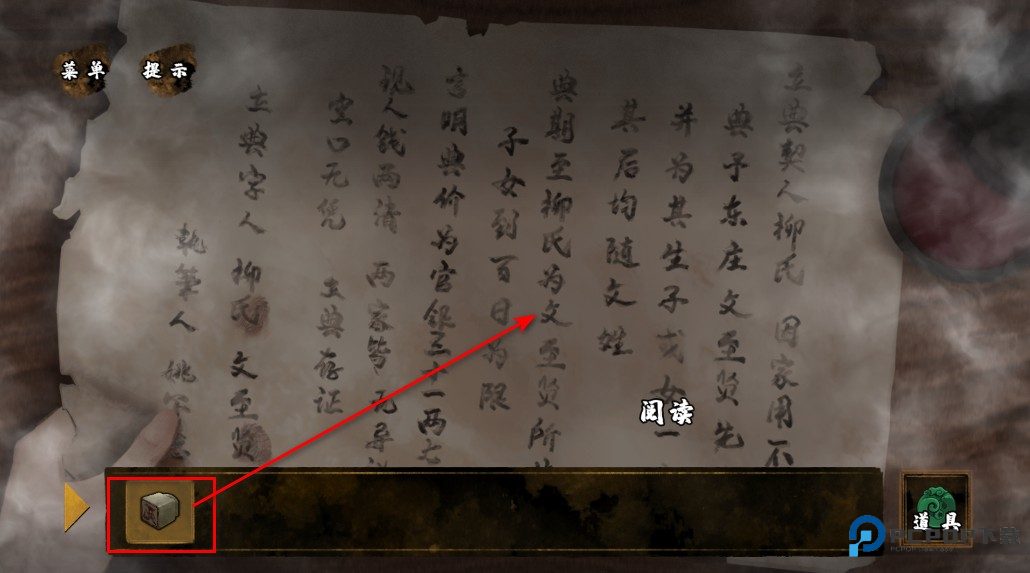 菜单
提示
立典契人柳氏 因家用不
典予东庄文至贤先
并为其生子或女一
其后均随文姓
典期至柳氏为文至贤所
子女到百日为限
言明典价为官银三十一两七
现人钱两清 两家皆无异
空口无凭 立典存证
立典字人 柳氏 文至贤
执笔人 姚
阅读
道具
PCPOP下载